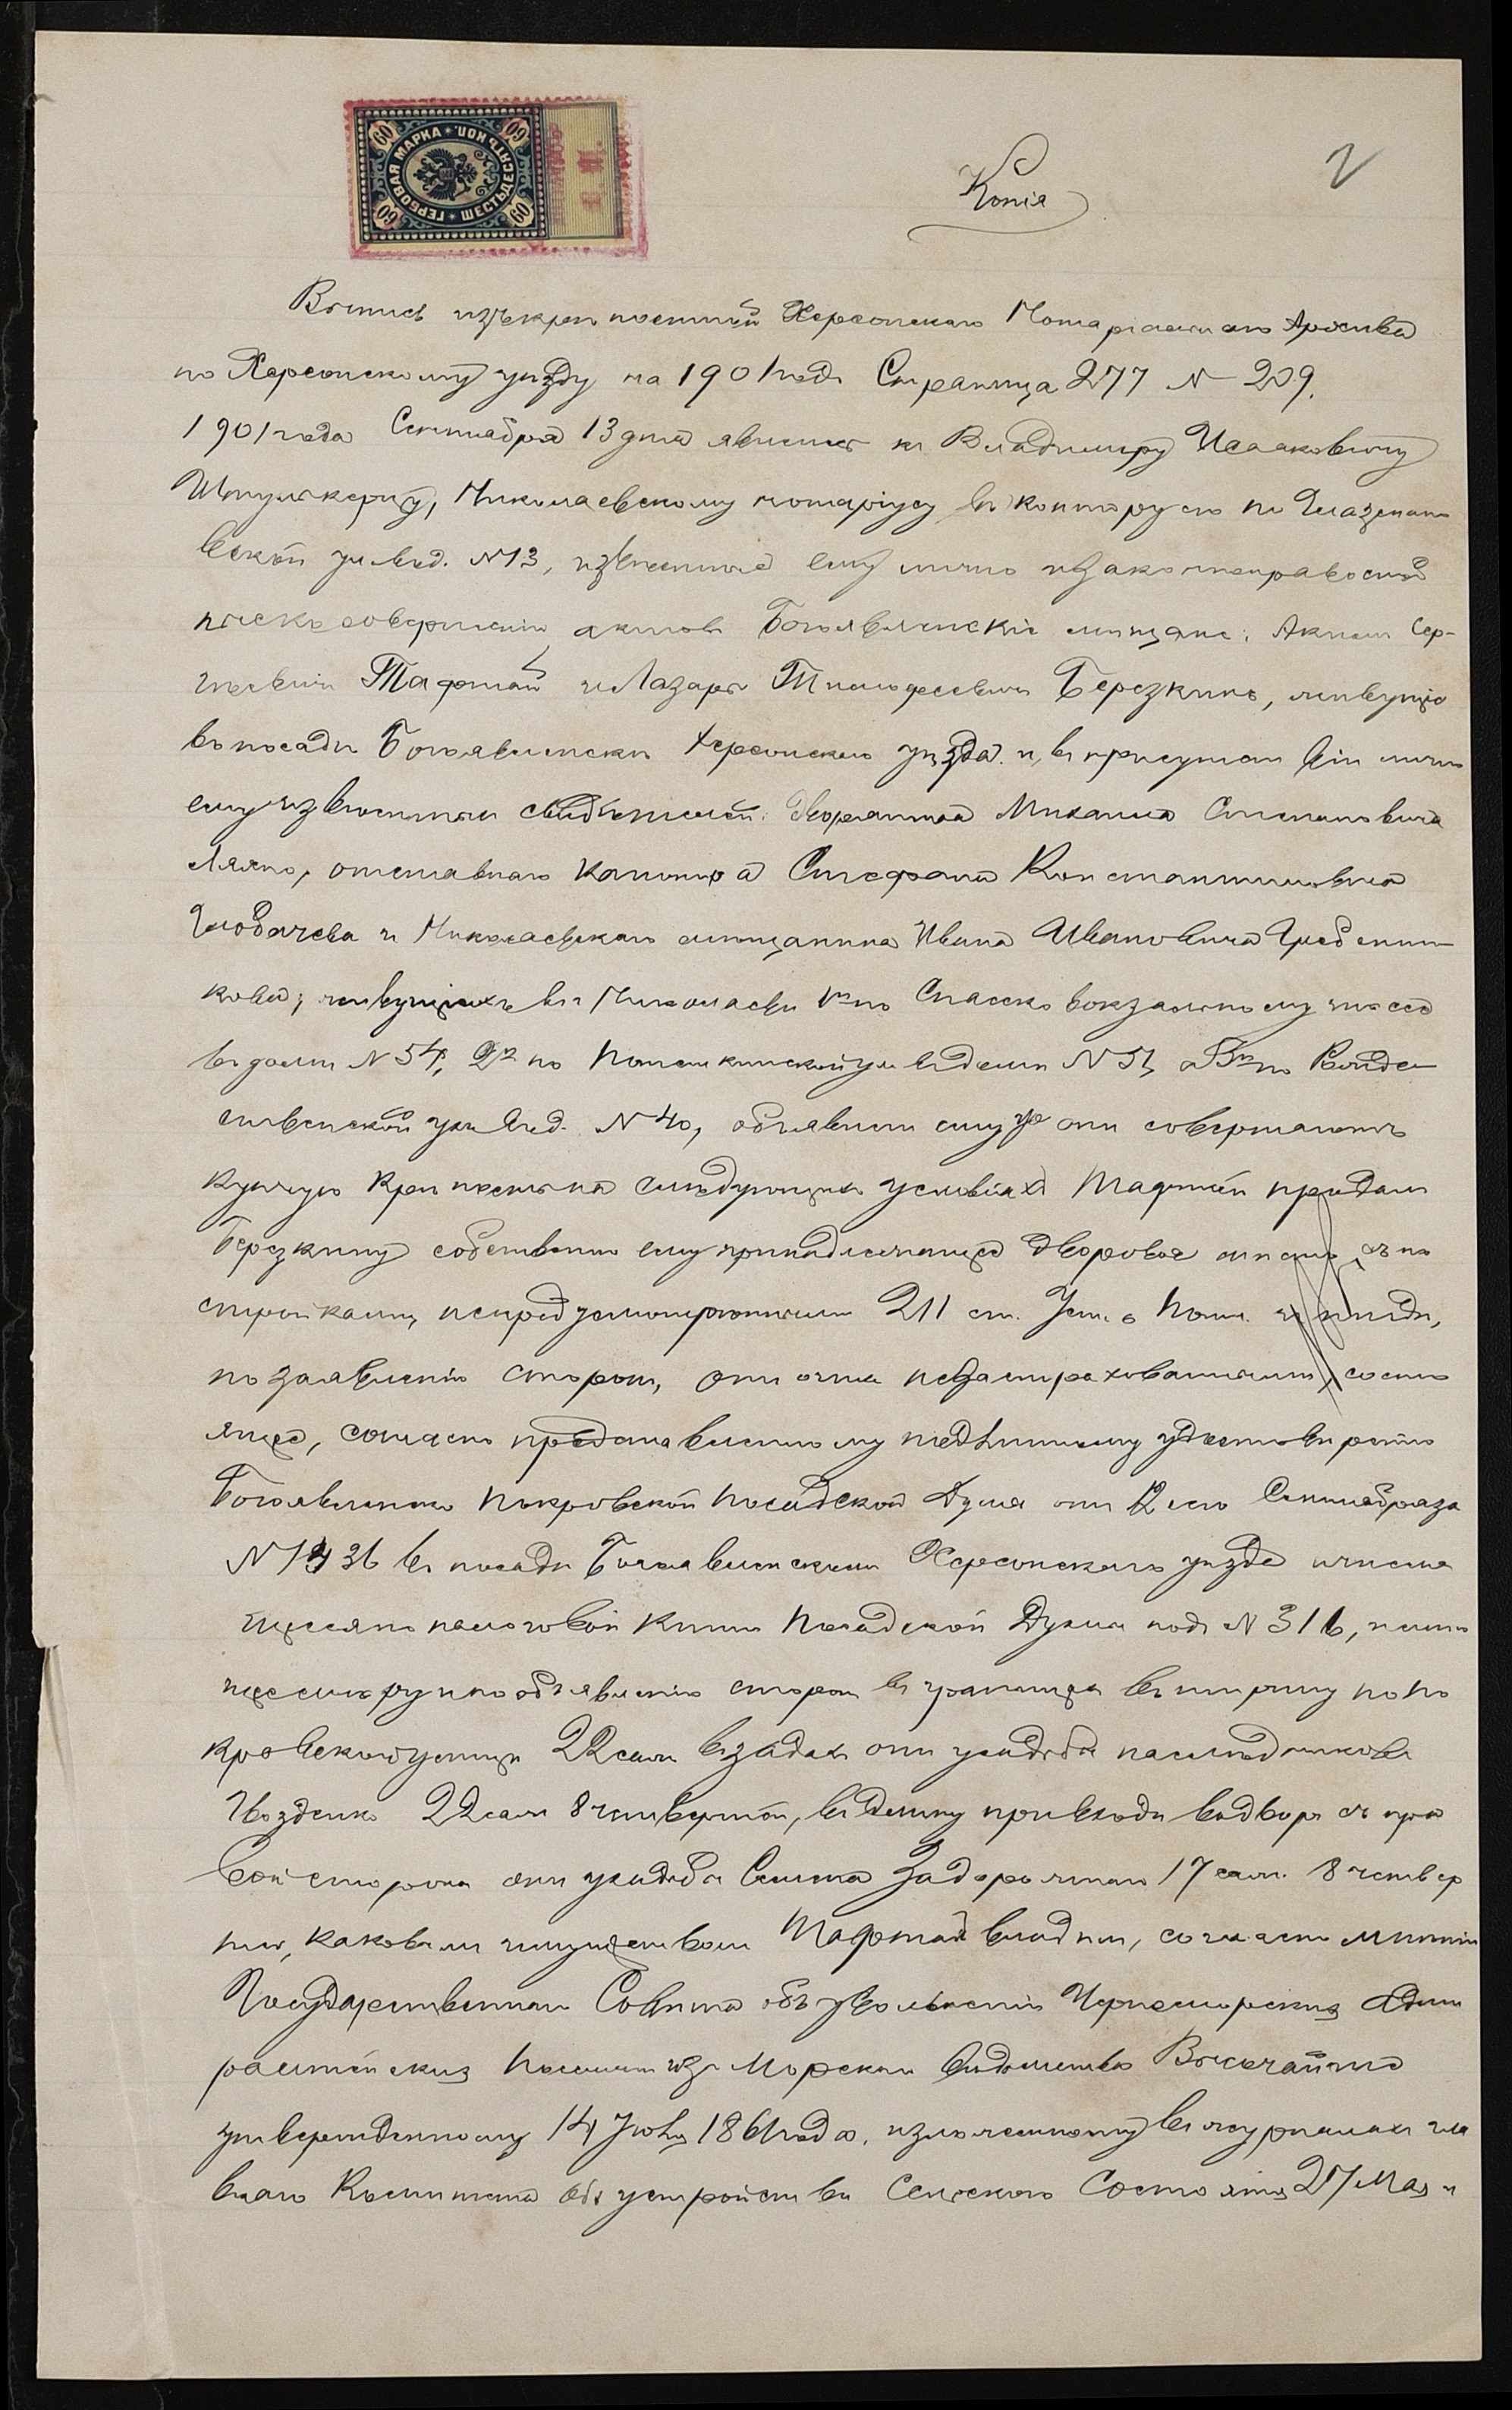 ГЕРБОВАЯ МАРКА * ШЕСТЬДЕСЯТЪ КОП. *
60 60 60 60
Копія
2
Выпись изъ крѣпостной Херсонскаго Нотаріальнаго Архива
по Херсонскому уѣзду на 1901 годъ Страница 277 № 209.
1901 года Сентября 13 дня явились къ Владимиру Исааковичу
Николаевскому нотаріусу въ контору его по Глазенапов
ской ул. въ д. №13, известные ему лично и законнеправоспособ
къ совершенію актовъ Богоявленскіе мещане: Акимъ Сер-
гѣевичъ Тафтай и Лазарь Тимофеевичъ Березкинъ, живущіе
въ посадѣ Богоявленскѣ Херсонскаго уѣзда. и, въ присутствіи лично
ему известныхъ свидѣтелей: дворянина Михаила Степановича
отставнаго Стефана Константиновича
и Николаевскаго мещанина Ивана Ивановича Гребенни-
кова; живущихъ въ г Николаевѣ 1й по Спасско вокзальному шоссе
въ домѣ №54, 2й по Потемкинской ул въ домѣ №51, а 3й по Рожде
ственской ул въ д. №40, объявили ему что они совершаютъ
купчую крѣпость на слѣдующихъ условіяхъ Тафтай продалъ
Березкину собственно ему принадлежащее дворовое мѣсто съ по
стройками, непредусмотренными 211 ст. Уст. о Пошл. и нигдѣ,
по заявленію сторонъ, отъ огня незастрахованными, состо
ящее, согласно представленному подлинному удостовѣренію
Богоявленско Покровской Посадской Думы отъ 12 сего Сентября за
№1436 въ посадѣ Богоявленскомъ Херсонскаго уѣзда и числя
щееся по налоговой книгѣ Посадской Думы подъ №316,
мѣру по объявленію сторонъ въ границахъ въ ширину по По
кровской улицѣ 22 саж въ задахъ отъ усадьбы наслѣдниковъ
Гвозденко 22 саж 8 четвертей, въ длину при входѣ въ дворъ съ пра
вой стороны отъ усадьбы Семена Задорожнаго 17 саж. 8 четвер
тей, каковымъ имуществомъ Тафтай владѣлъ, согласно мнѣнію
Государственнаго Совѣта объ увольненіи Черноморскихъ Адми
ралтейскихъ Поселянъ изъ Морского вѣдомства Высочайше
утвержденному 14 Іюля 1861 года, изложенному въ журналахъ гла
внаго Комитета объ устройствѣ Сельскаго Состоянія 27 Мая и